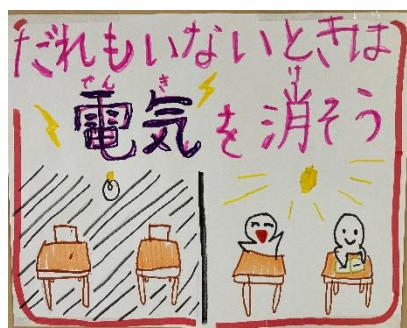 だれもいないときは
でんき け
電気を消そう